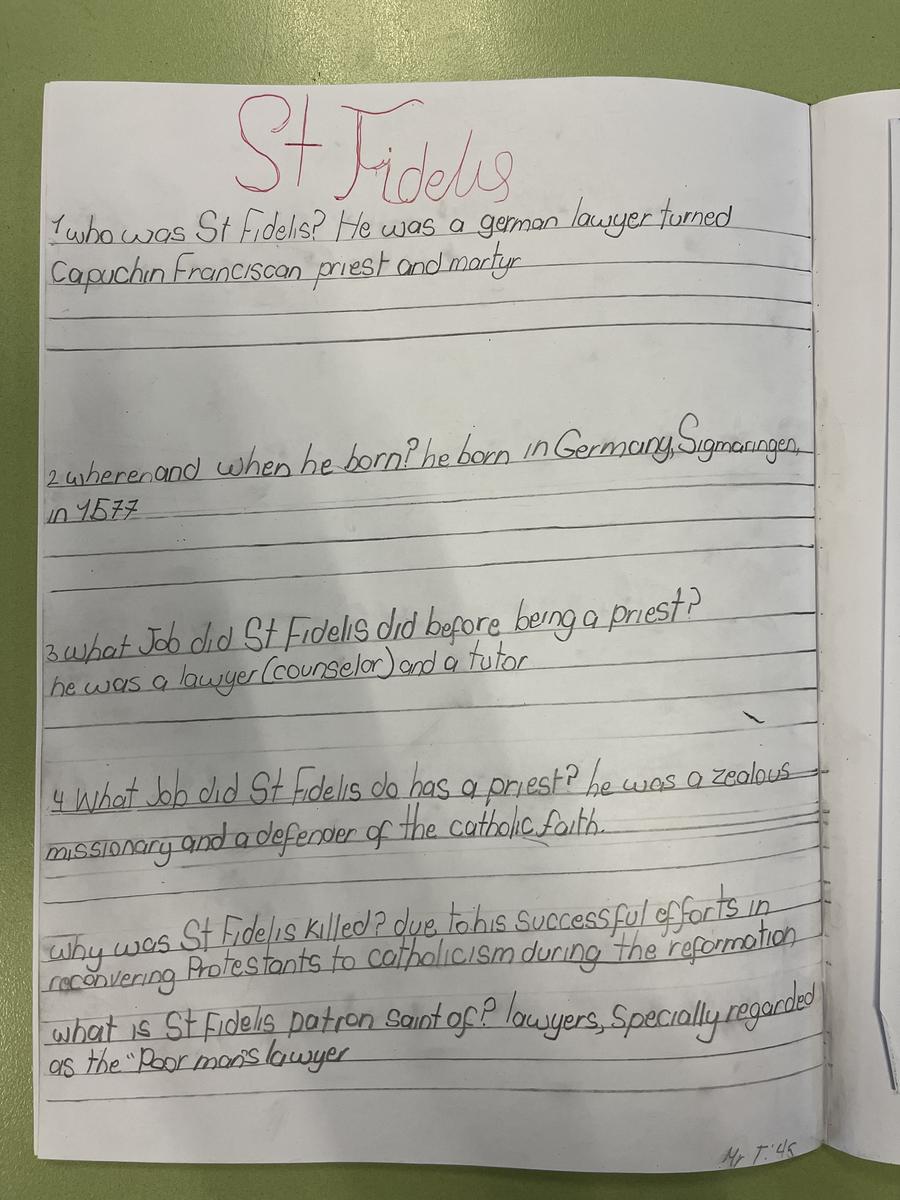 St Fidelis
1 who was St Fidelis? He was a german lawyer turned
Capuchin Franciscan priest and martyr
2 where and when he born? he born in Germany, Sigmaringen,
in 1577
3 what Job did St Fidelis did before being a priest?
he was a lawyer (counselor) and a tutor
4 What Job did St Fidelis do has a priest? he was a zealous
missionary and a defender of the catholic faith.
why was St Fidelis killed? due to his successful efforts in
reconvering Protestants to catholicism during the reformation
what is St Fidelis patron saint of? lawyers, Specially regarded
as the "Poor man's lawyer
Mr T.